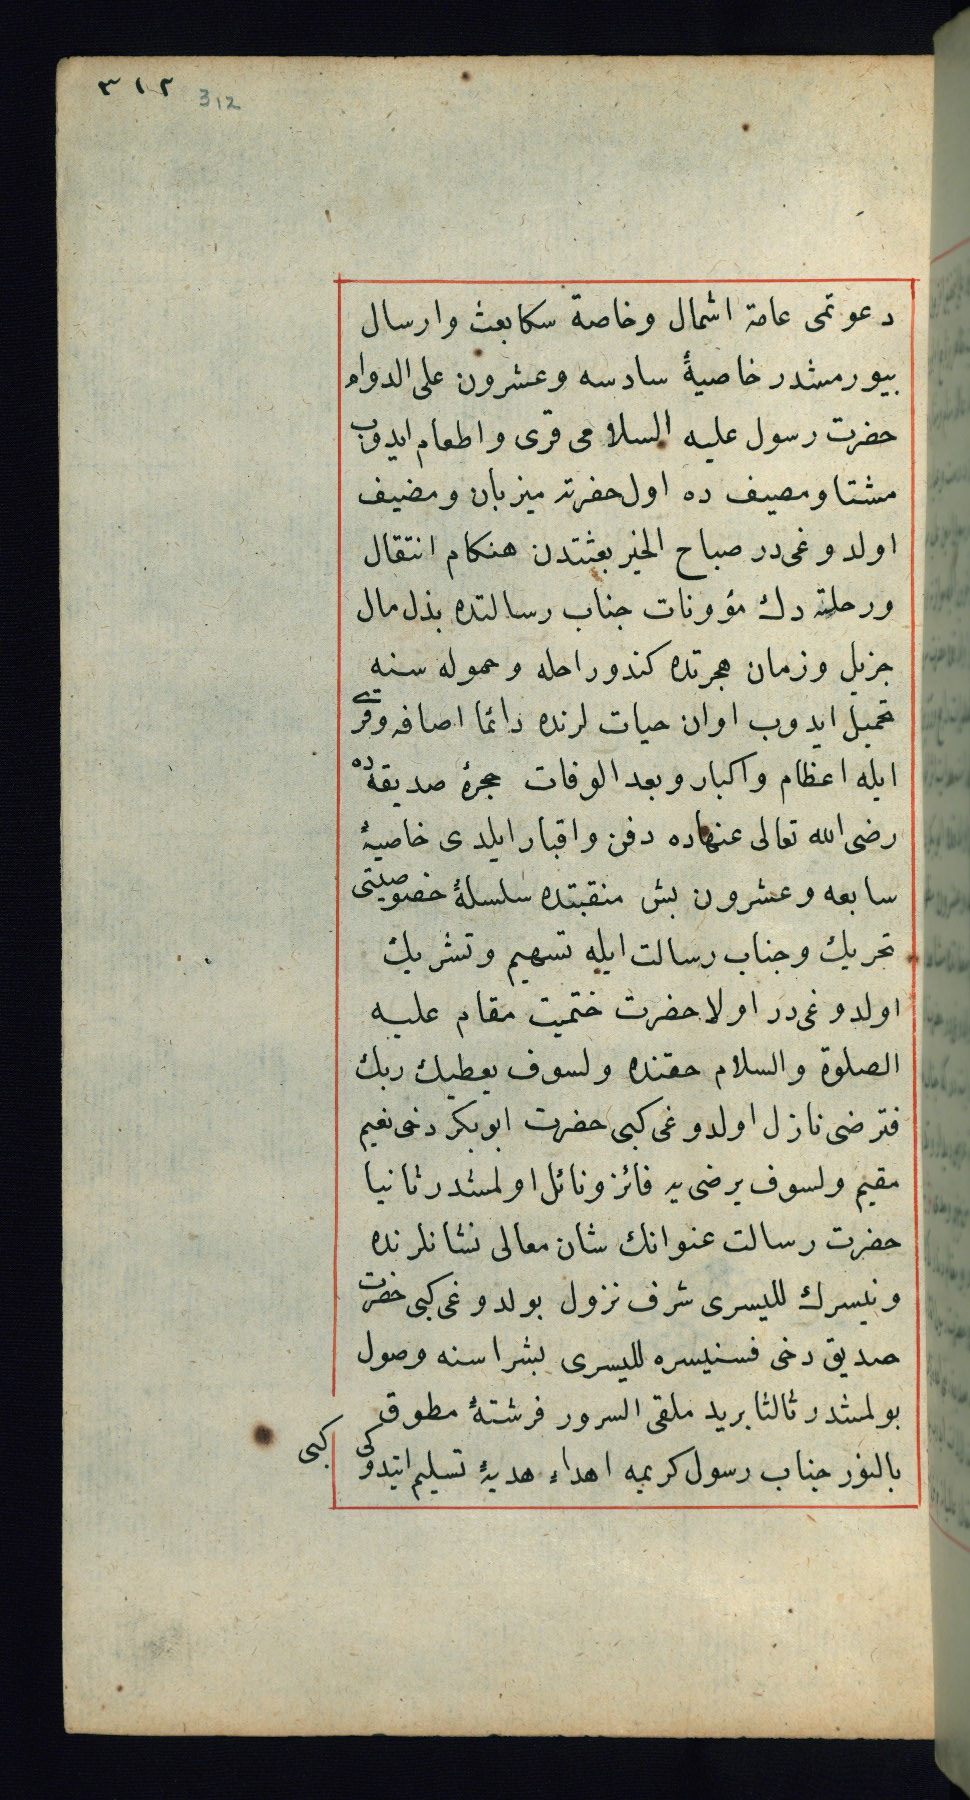 ٣١٢ 312
دعوتمی عامة اشمال وخاصة سكا بعث وارسال
بیورمشدر خاصیهٔ سادسه وعشرون علی الدوام
حضرت رسول علیه السلامی قری واطعام ایدوب
مشتا ومصیف ده اول حضرته میزبان ومضیف
اولدوغی در صباح الخیر بعثتدن هنکام انتقال
ورحلته دك مؤونات جناب رسالتده بذل مال
جزیل وزمان هجرتده کندو راحله وحموله سنه
تحمیل ایدوب اوان حیات لرنده دائما اضافه وقری
ایله اعظام واکبار وبعد الوفات حجرهٔ صدیقه ده
رضی الله تعالی عنهاده دفن واقبار ایلدی خاصیهٔ
سابعه وعشرون بش منقبتده سلسلهٔ خصوصیتی
تحریك وجناب رسالت ایله تسهیم وتشریك
اولدوغی در اولا حضرت ختمیت مقام علیه
الصلوة والسلام حقنده ولسوف یعطیك ربك
فترضی نازل اولدوغی کبی حضرت ابوبکر دخی نعیم
مقیم ولسوف یرضی یه فائز ونائل اولمشدر ثانیا
حضرت رسالت عنوانك شان معالی نشانلرنده
ونیسرك للیسری شرف نزول بولدوغی کبی حضرت
صدیق دخی فسنیسره للیسری بشراسنه وصول
بولمشدر ثالثا برید ملقی السرور فرشتهٔ مطوق
بالنور جناب رسول کریمه اهداء هدیهٔ تسلیم ایتدوکی
کبی